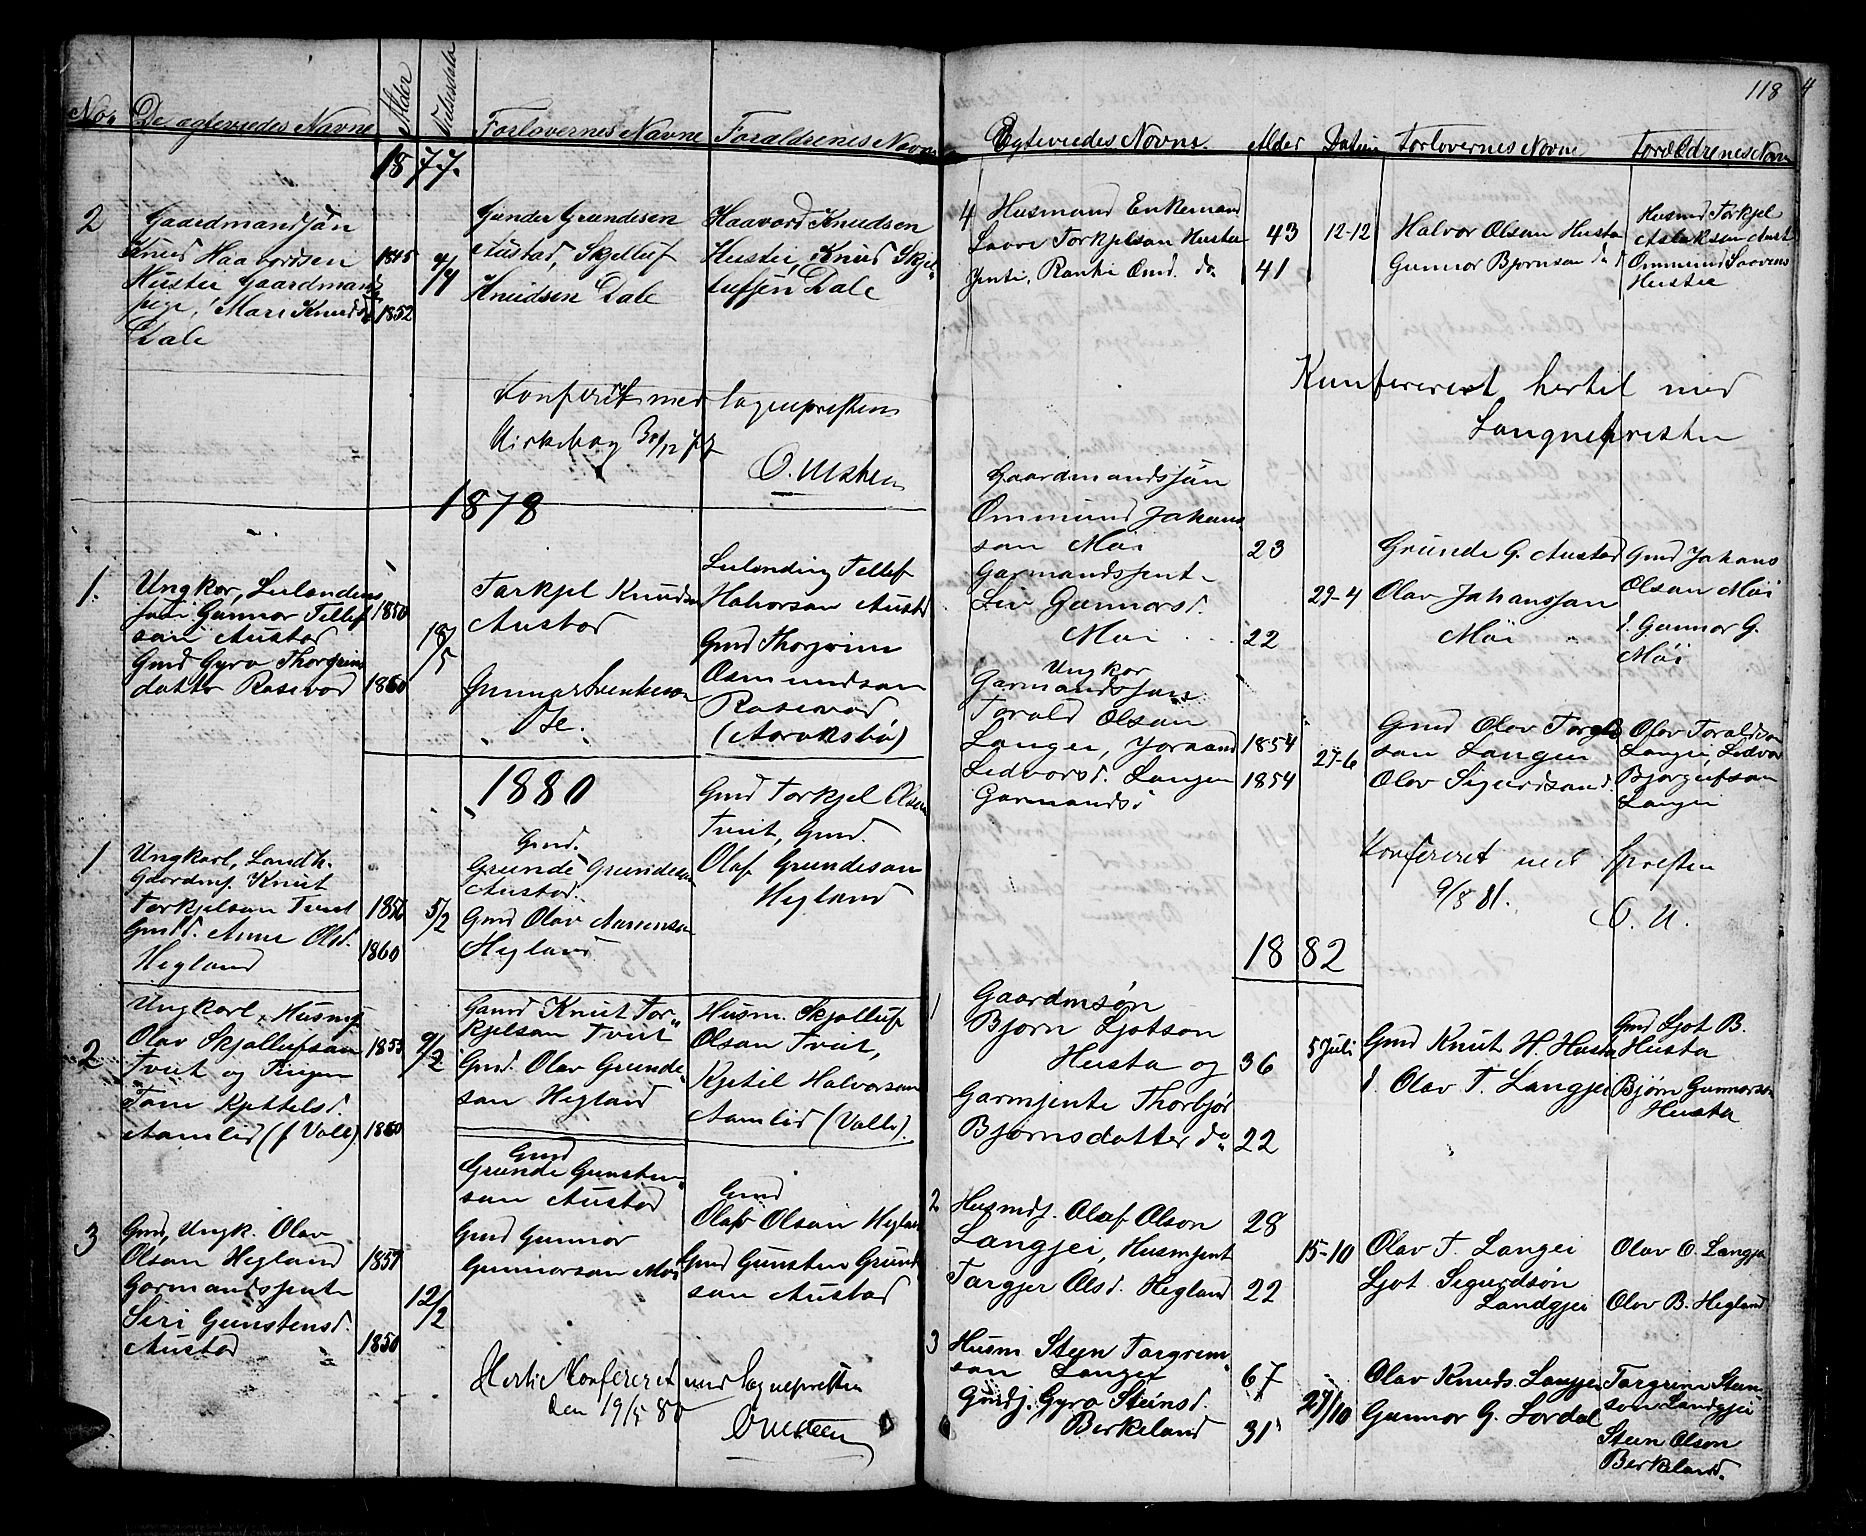 No. De ægteviedes Navne Alder Vielsesdato Forlovernes Navne Forældrenes Navne
1877.
2
Gaardmandsøn
Knud Haavordsen
Huster Gaardmands
pige, Mari Knudsd
Dale
1845
1852
4/4
Gunder Grundesen
Austad, Skjelluf
Knudsen Dale
Haavord Knudsen
Hustei, Knud Skjel-
lufsen Dale
Konferert med Sognepresten
Kirkebog 30/12 77
O. Uleken
1878
1.
Ungkar, Leilendings
søn Gunnor Tellef
son Austad
Gmd Gyro Thorgrims
datter Rosevod
1850
1860
18/5
Tarkjel Knudsen
Austad
Gunnar Svenkeson
Ose.
Leilending Tellef
Halvorson Austd
Gmd Thorgrim
Osmundson
Rosevod
(Aaraksbø)
1880
1
Ungkarl, Landh.
Gaardms. Knut
Torkjelson Tveit
Gmdd. Anne Olsd.
Hegland
1856
1860
5/2
Gmd.
Grunde Grundeson
Austad.
Gmd Olav Aanenson
Hegland
Gmd Torkjel Olson
Tveit, Gmd.
Olaf Grundeson
Hegland
2
Ungkarl, Husms.
Olav Skjallufson
Tveit og Pigen
Tone Kjettelsd.
Aamlid (f Valle)
1853
1860
9/2
Gamd Knut Tor-
kjelson Tveit
Gmd. Olav Grunde-
son Hegland
Husm. Skjalluf
Olson Tveit,
Kjetil Halvorson
Aamlid (Valle).
3
Gmd, Ungk. Olav
Olson Hegland
Gormandsjente
Siri Gunstensd.
Austad
1857
1850
12/2
Gmd
Grunde Gunsten-
son Austad
Gmd Gunnor
Gunnorson Moi
Gmd
Olaf Olson Hegland
Gmd Gunsten Grunde
son Austad
Hertil Konfereret med Sognepresten
Den 19/5 80
118 4
Egteviedes Navne. Alder Datum Forlovernes Navne Forældrenes Navne
4
Husmand Enkemand
Torkjelson Hustei
Jente, Ranki Omd. do
43
41
12-12
Halvor Olson Husta
Gunnor Bjornson do
Husmd Torkjel
Aslakson Aust
Ommund
Hustei
Konfereret hertil med
Songnepresten
Gaardmandssøn
Ommund Johans
son Moi
Garmandsjent-
Liv Gunnorsd.
Moi
23
22
29-4
Grunde G. Austad
Olav Johansson
Möi
Gmd Johans
Olson Möi
d. Gunnor G.
Möi
Ungkor
Garmandsson
Torald Olson
Langei, Jorand
Ledvorsd. Langei
Garmands.
1854
1854
27-6
Gmd Olov Torals
son Langei
Olov Sigurdson d.
Olov Toraldson
Langei, Ledvor
Bjorgufson
Langei
Konfereret med Presten
9/8 81.
O. U.
1882
1
Gaardmsøn
Bjorn Ljotson
Husta og
Garmjente Thorbjør
Bjornsdatter do
36
22
5 Juli
Gmd Knut H. Husta
d. Olav T. Langjei
Gmd Ljot B.
Husta
Bjørn Gunnorson
Husta
2
Husmds. Olaf Olson
Langjei, Husmjent
Targjer Olsd. Hegland
28
22
15-10
Olav T. Langei
Ljot Sigurdsøn
Landgjei
Olav O. Langje
Olov B. Hegland
3
Husm. Stein Torgrim-
son Langei
Gmdj. Gyro Steinsd.
Berkeland
67
31
27/10
Olav Knuds. Langjei
Gunnor G. Lordal
Targrim Stein-
son Landgjei
Stein Olson
Berkeland.